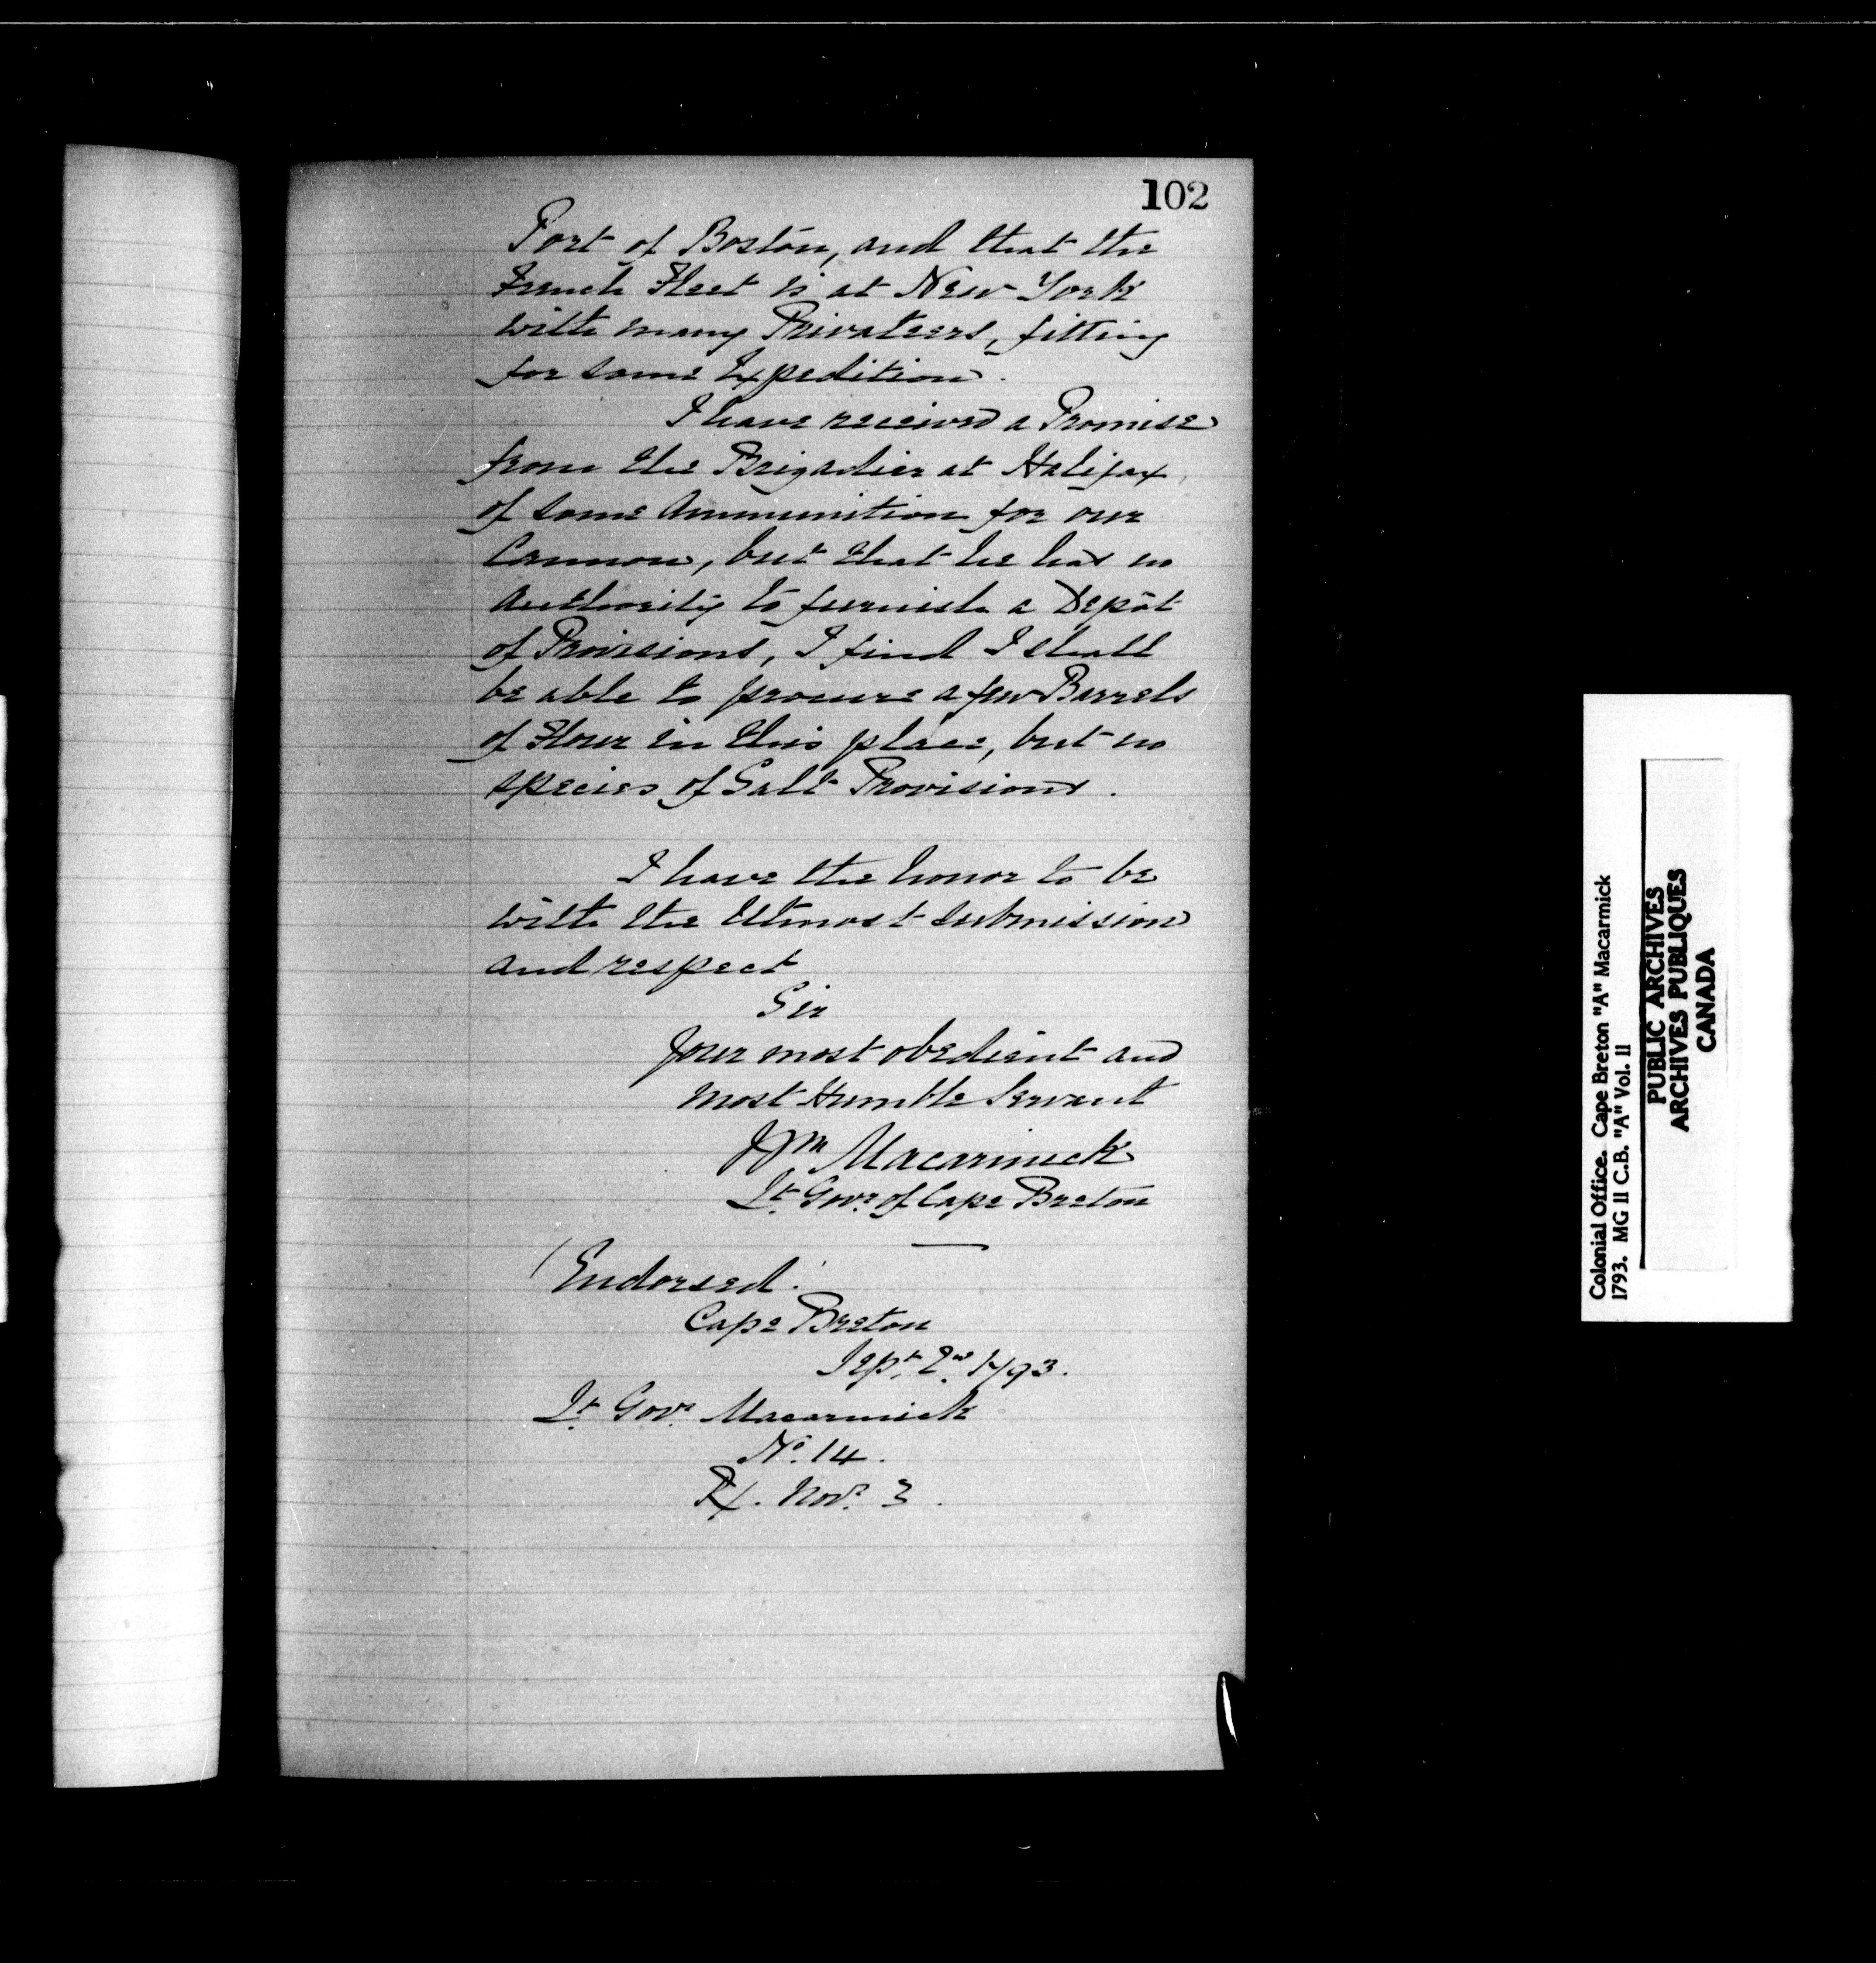 102
Port of Boston, and that the
French Fleet is at New York
with many Privateers, fitting
for some Expedition.
I have received a Promise
from the Brigadier at Halifax,
of some Ammunition for our
Cannon, but that he has no
Authority to furnish a Depôt
of Provisions, I find I shall
be able to procure a few Barrels
of Flour in this place, but no
species of Salt Provisions.
I have the honor to be
with the Utmost submission
and respect
Sir
Your most obedient and
most Humble Servant
Wm Macarmick
Lt. Govr. of Cape Breton
(Endorsed.
Cape Breton
Sept. 2nd 1793.
Lt. Govr. Macarmick
No. 14.
Rx. Novr. 3.
Colonial Office. Cape Breton "A" Macarmick
1793. MG 11 C.B. "A" Vol. 11
PUBLIC ARCHIVES
ARCHIVES PUBLIQUES
CANADA